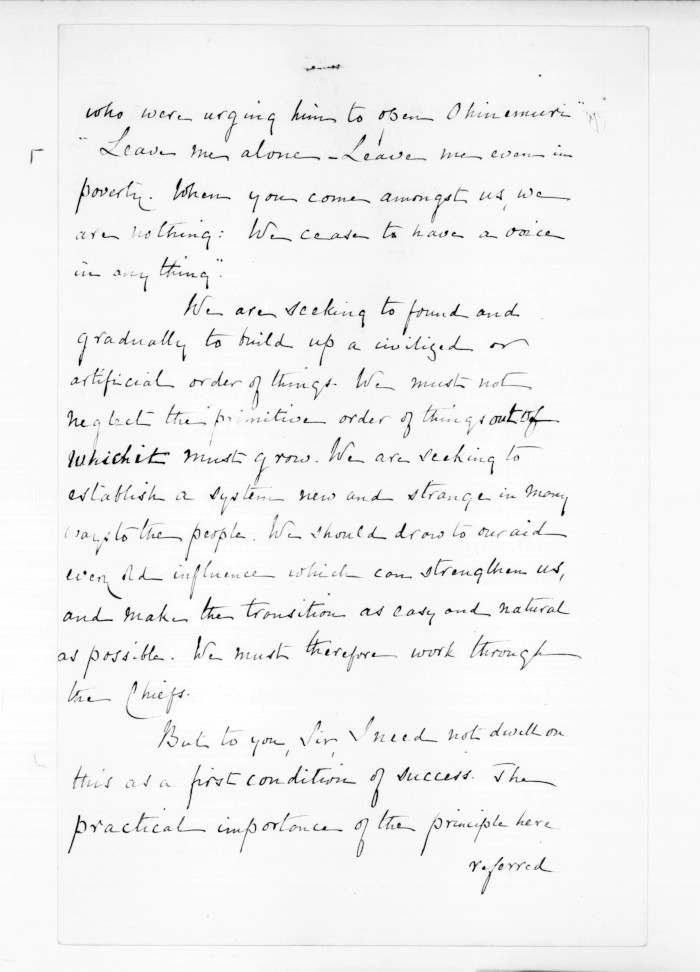 who were urging him to open Ohinemuri"
"Leave me alone – Leave me even in
poverty. When you come amongst us, we
are nothing: We cease to have a voice
in any thing".
We are seeking to found and
gradually to build up a civilized or
artificial order of things. We must not
neglect the primitive order of things out of
which it must grow. We are seeking to
establish a system new and strange in many
ways to the people. We should draw to our aid
every old influence which can strengthen us,
and make the transition as easy and natural
as possible. We must therefore work through
the Chiefs.
But to you, Sir, I need not dwell on
this as a first condition of success. The
practical importance of the principle here
referred